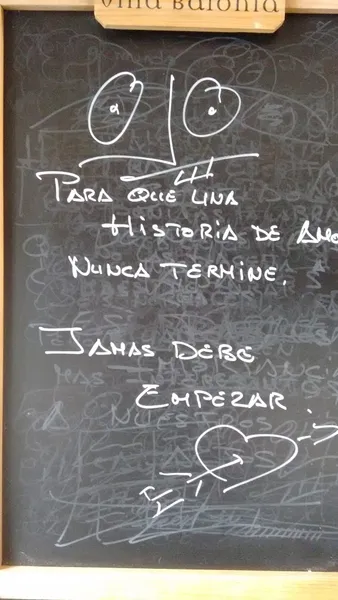 PARA QUE UNA
HISTORIA DE AMO
NUNCA TERMINE.
JAMAS DEBE
EMPEZAR.